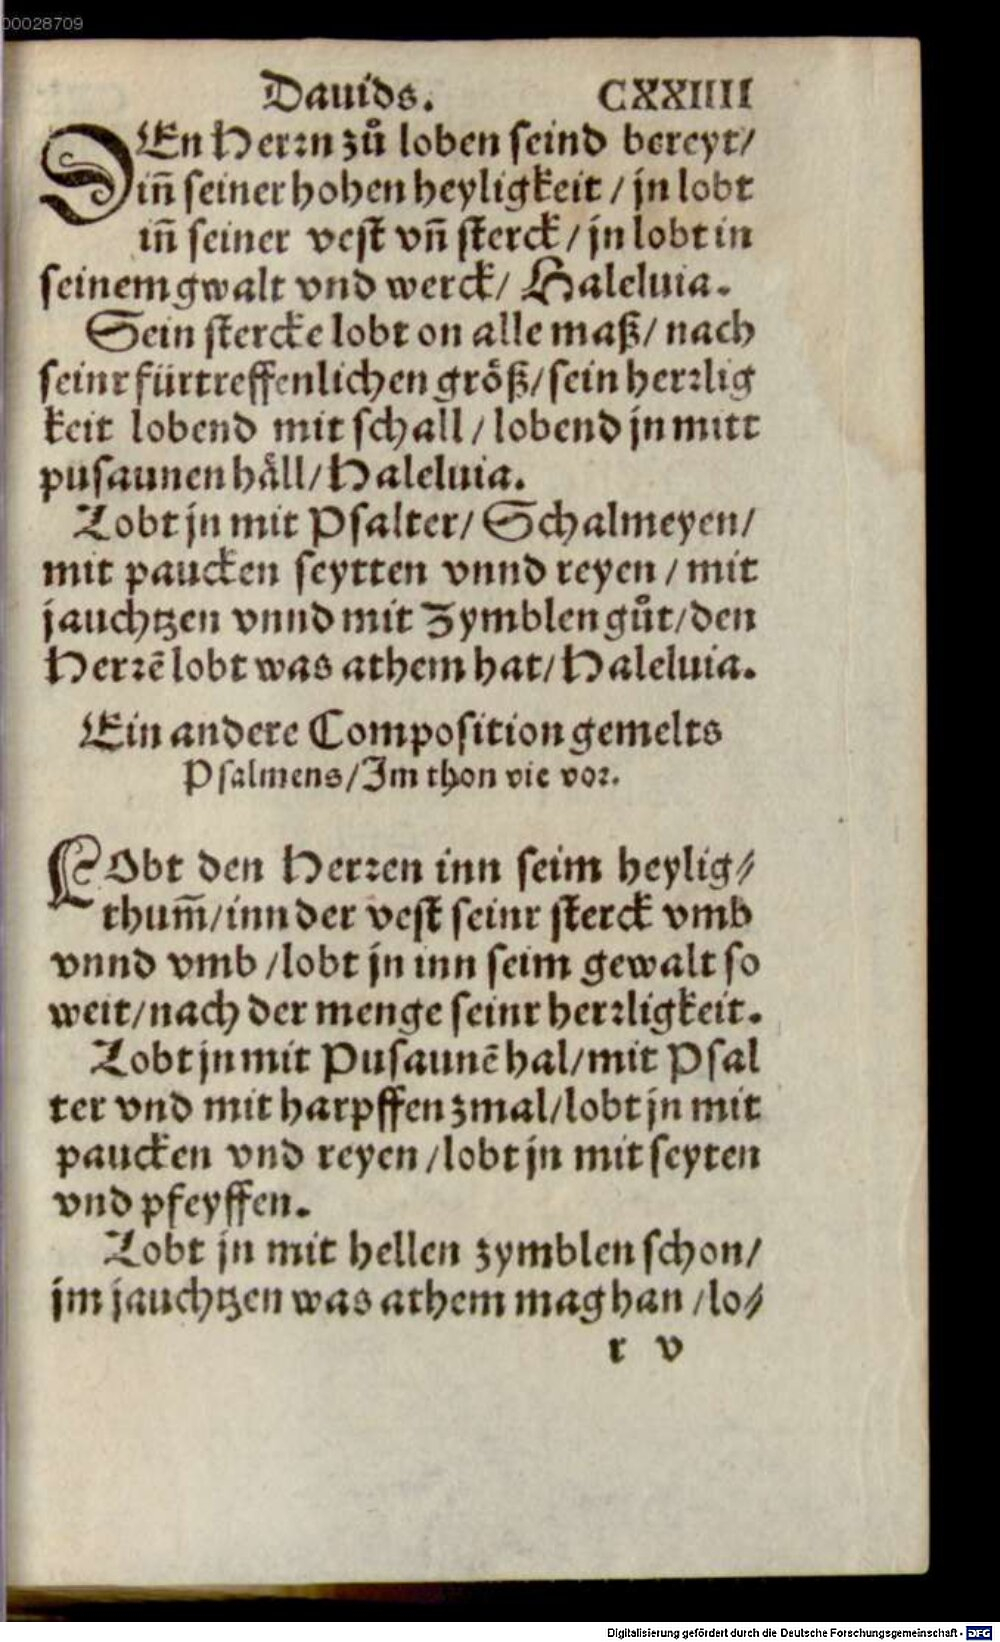 00028709
Dauids. CXXIIII
DEn Herrn zů loben seind bereyt/
iñ seiner hohen heyligkeit / jn lobt
iñ seiner vest vñ sterck / jn lobt in
seinem gwalt vnd werck/ Haleluia.
Sein stercke lobt on alle maß/ nach
seinr fürtreffenlichen größ/ sein herrlig
keit lobend mit schall / lobend jn mitt
pusaunen håll/ Haleluia.
Lobt jn mit Psalter/ Schalmeyen/
mit paucken seytten vnnd reyen / mit
jauchtzen vnnd mit Zymblen gůt/ den
Herrē lobt was athem hat/ Haleluia.
Ein andere Composition gemelts
Psalmens/ Im thon vie vor.
LObt den Herren inn seim heylig⸗
thum̃/ inn der vest seinr sterck vmb
vnnd vmb / lobt jn inn seim gewalt so
weit/ nach der menge seinr herrligkeit.
Lobt jn mit Pusaunē hal/ mit Psal
ter vnd mit harpffen zmal/ lobt jn mit
paucken vnd reyen / lobt jn mit seyten
vnd pfeyffen.
Lobt jn mit hellen zymblen schon/
jm jauchtzen was athem mag han / lo⸗
r v
Digitalisierung gefördert durch die Deutsche Forschungsgemeinschaft - DFG